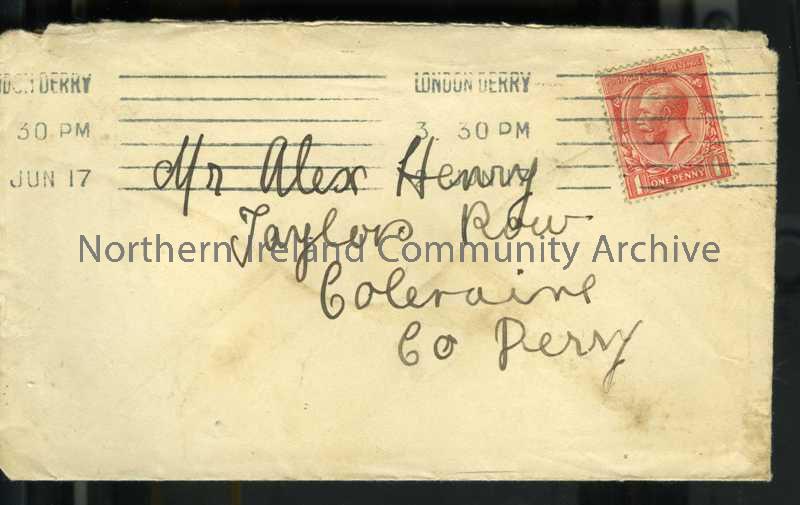 NDON DERRY LONDON DERRY
30 PM 3. 30 PM
JUN 17
1 ONE PENNY 1
Mr Alex Henry
Taylors Row
Northern Ireland Community Archive
Coleraine
Co Derry